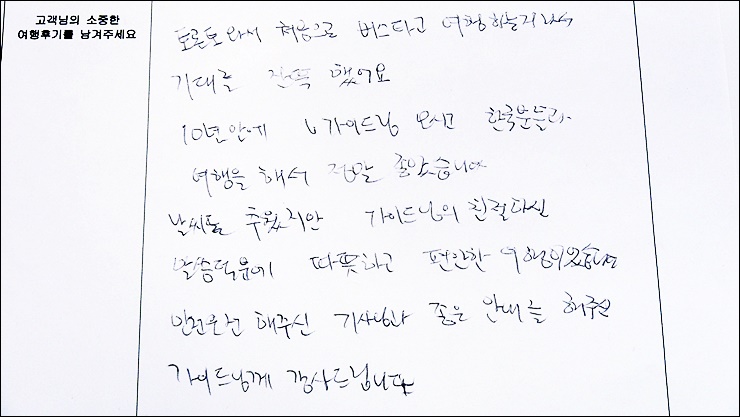 고객님의 소중한
여행후기를 남겨주세요
토론토와서 처음으로 버스타고 여행하는거라서
기대를 잔뜩 했어요
10년만에 가이드님 모시고 한국분들과
여행을 해서 정말 좋았습니다
날씨는 추웠지만 가이드님의 친절하신
말씀덕분에 따뜻하고 편안한 여행이었습니다
안전운전 해주신 기사님과 좋은 안내를 해주신
가이드님께 감사드립니다